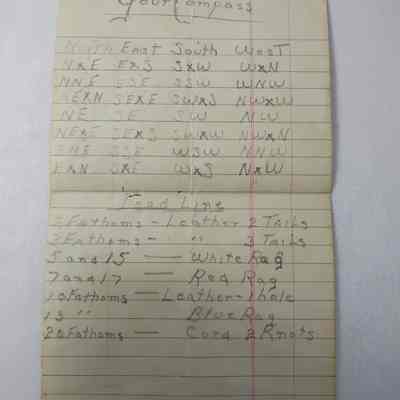 Your Compass
North East South West
NxE ExS SxW WxN
NNE ESE SSW WNW
NExN SExE SWxS NWxW
NE SE SW NW
NExE SExS SWxW NWxN
ENE SSE WSW NNW
ExN SxE WxS NxW
Lead Line
2 Fathoms - Leather 2 Tails
3 Fathoms - " 3 Tails
5 and 15 — White Rag
7 and 17 — Red Rag
10 Fathoms — Leather-1 hole
13 " Blue Rag
20 Fathoms — Cord 2 Knots